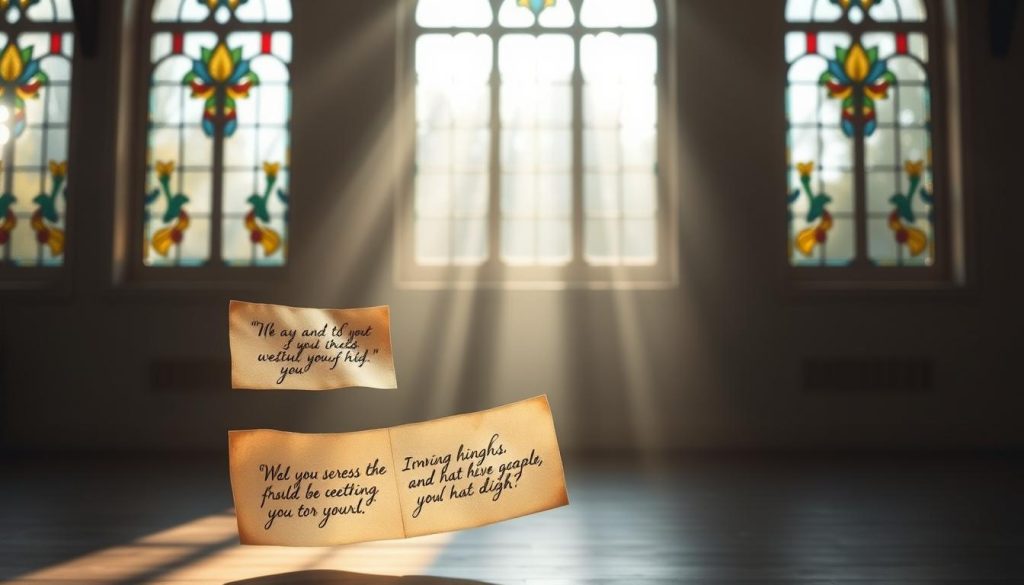 "The ay and td yout
s you thels.
westul youy hid."
you
Wel you seress the
fhsuld be ceetting
you tor yourl.
Imving hinghs.
and hat hive gcaple,
you! hat digh?